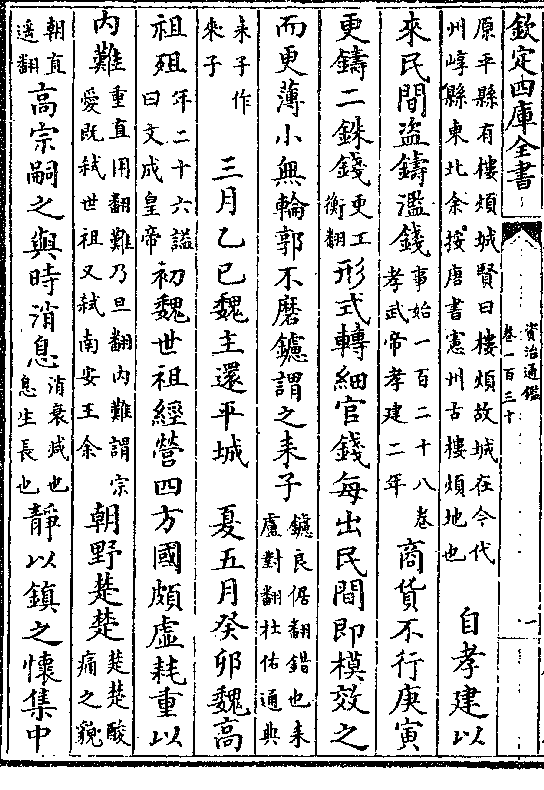 欽定四庫全書
資治通鑑
卷一百三十
一
原平縣有樓煩城賢曰樓煩故城在今代
州崞縣東北余按唐書憲州古樓煩地也
自孝建以
來民間盜鑄濫錢
事始一百二十八卷
孝武帝孝建二年
商貨不行庚寅
更鑄二銖錢
更工
衡翻
形式轉細官錢每出民間即模效之
而更薄小無輪郭不磨鑢謂之耒子
鑢良倨翻錯也耒
盧對翻杜佑通典
耒子作
來子
三月乙巳魏主還平城
夏五月癸卯魏高
祖殂
年二十六謚
曰文成皇帝
初魏世祖經營四方國頗虛耗重以
內難
重直用翻難乃旦翻內難謂宗
愛既弒世祖又弒南安王余
朝野楚楚
楚楚酸
痛之貌
朝直
遥翻
高宗嗣之與時消息
消衰減也
息生長也
靜以鎮之懷集中